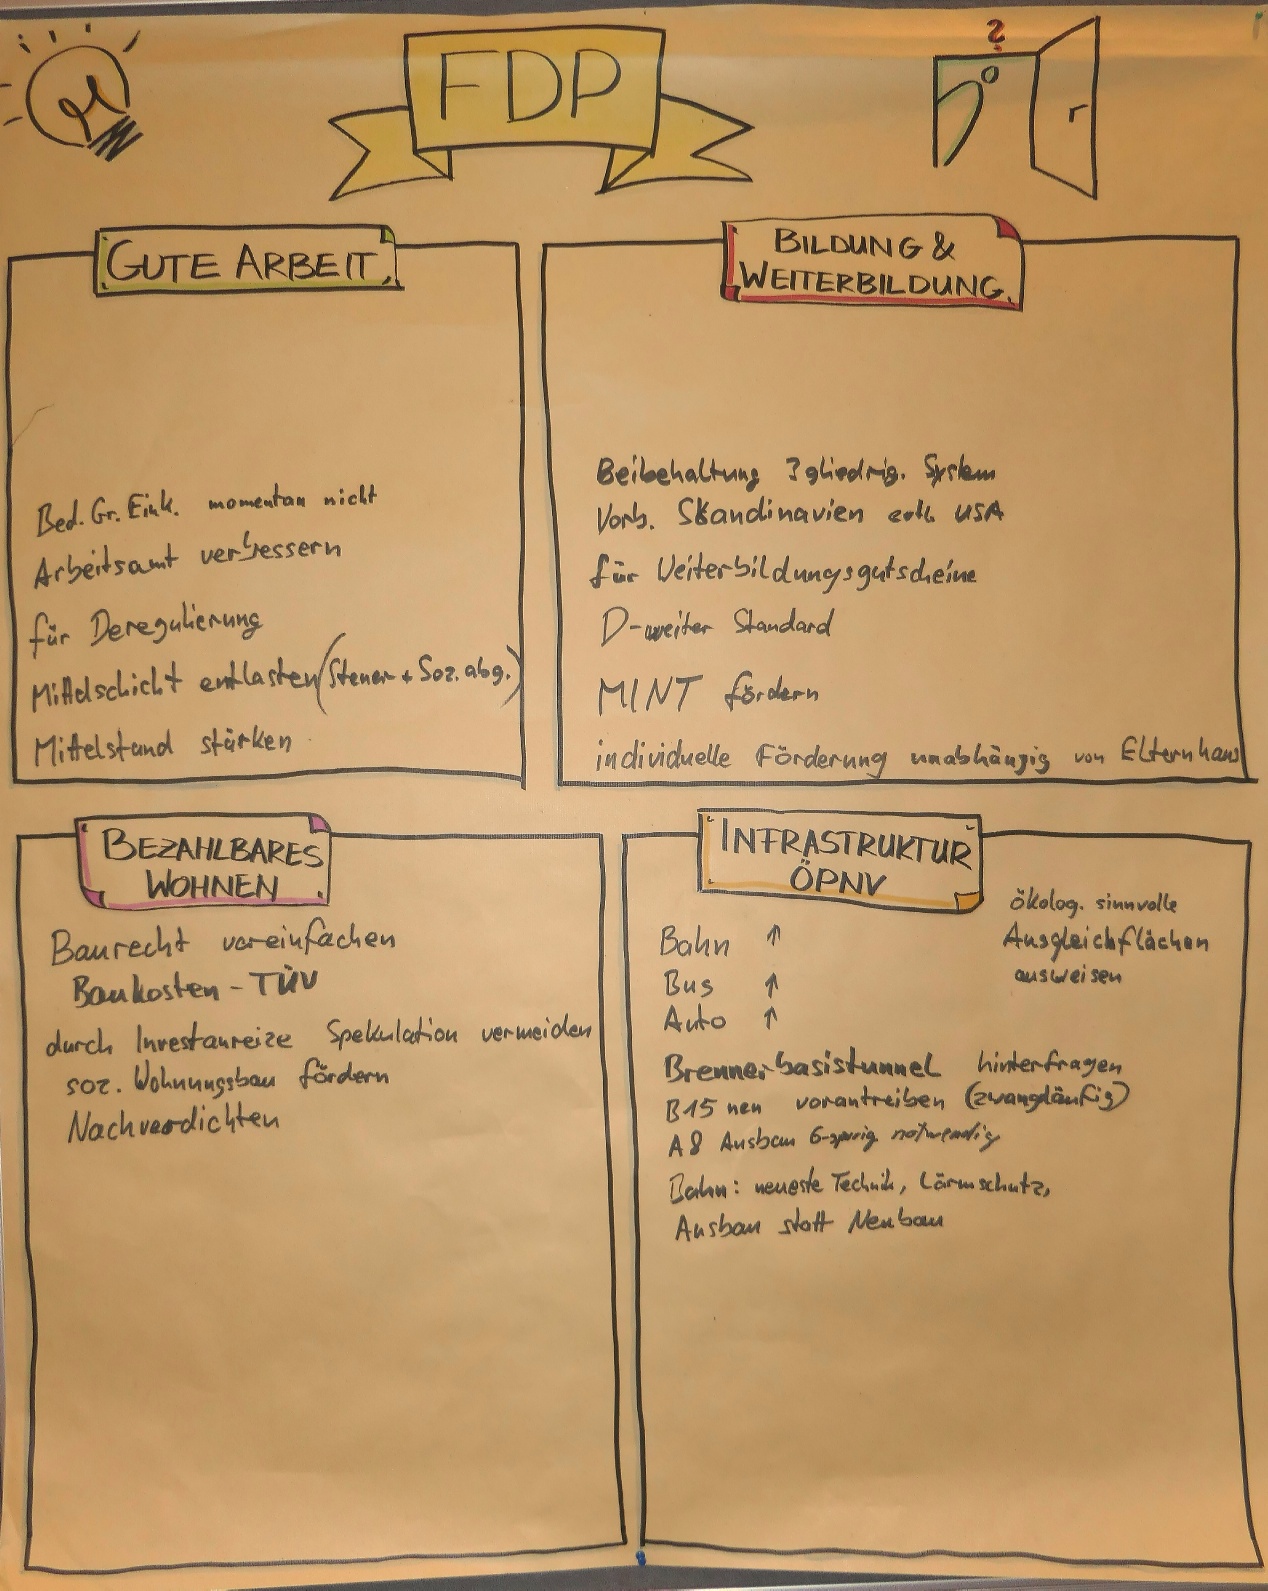 FDP
?
GUTE ARBEIT
Bed. Gr. Eink. momentan nicht
Arbeitsamt verbessern
für Deregulierung
Mittelschicht entlasten (Steuer + Soz. abg.)
Mittelstand stärken
BILDUNG &
WEITERBILDUNG
Beibehaltung 3gliedrig. System
Vorb. Skandinavien evtl. USA
für Weiterbildungsgutscheine
D-weiter Standard
MINT fördern
individuelle Förderung unabhängig von Elternhaus
BEZAHLBARES
WOHNEN
Baurecht vereinfachen
Baukosten - TÜV
durch Investanreize Spekulation vermeiden
soz. Wohnungsbau fördern
Nachverdichten
INFRASTRUKTUR
ÖPNV
Bahn ↑
Bus ↑
Auto ↑
ökolog. sinnvolle
Ausgleichflächen
ausweisen
Brennerbasistunnel hinterfragen
B15 neu vorantreiben (zwangsläufig)
A8 Ausbau 6-spurig notwendig
Bahn: neueste Technik, Lärmschutz,
Ausbau statt Neubau